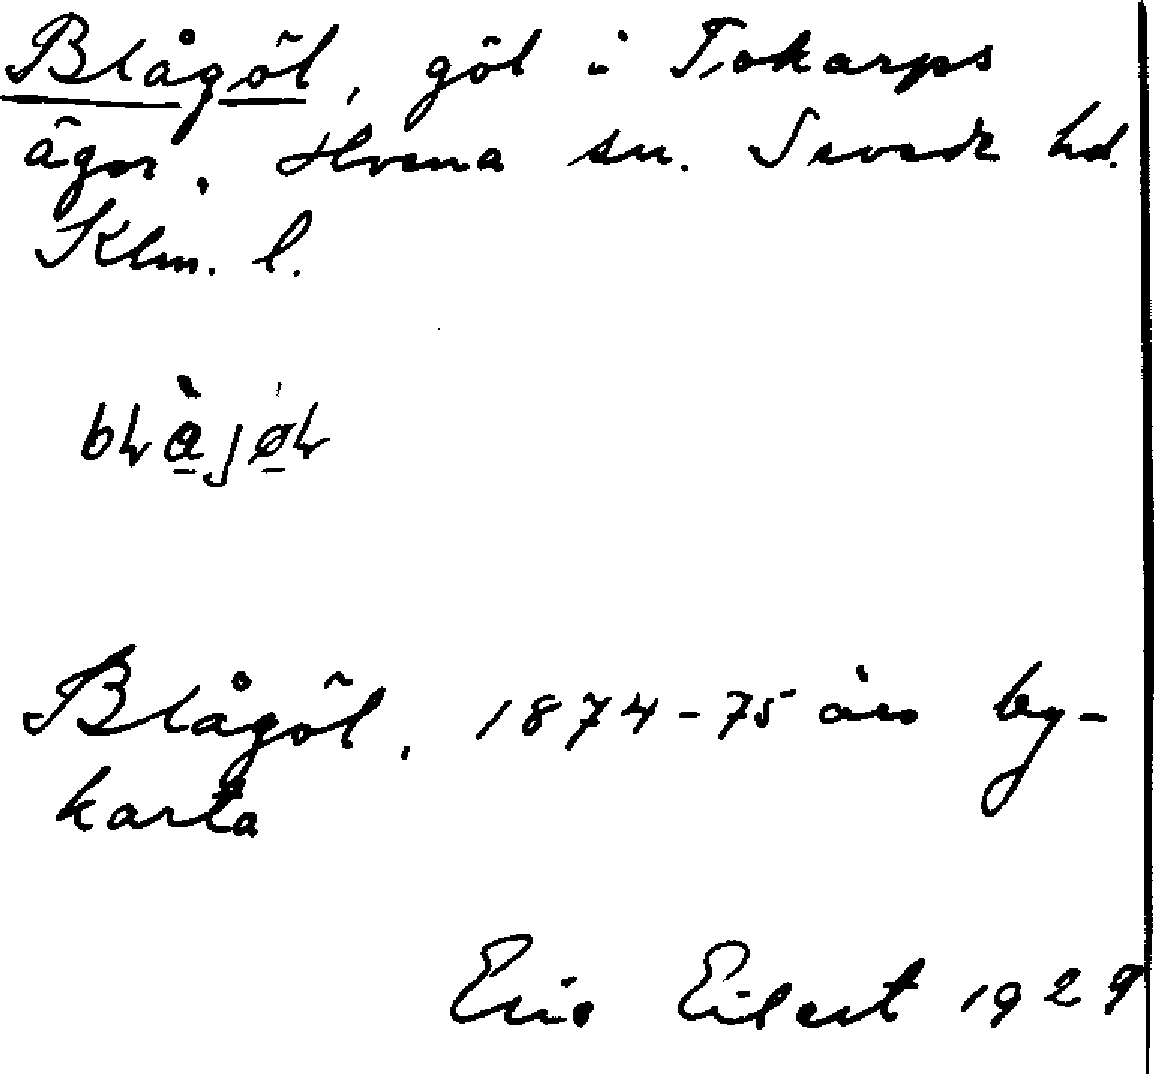 Blågöl, göl i Tokarps
ägor, Hvena sn. Sevede hd.
Klm. l.
Blågöl, 1874-75 års by-
karta
Eric Eilert 1929